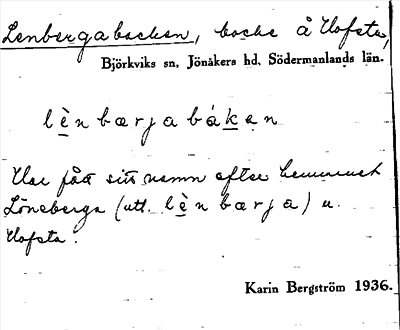 Lenbergabacken, backe å Hofsta,
Björkviks sn, Jönåkers hd, Södermanlands län.
lè̱nbærjabá̱kən
Har fått sitt namn efter hemmanet
Löneberga (utt. lè̱nbærja) u.
Hofsta.
Karin Bergström 1936.